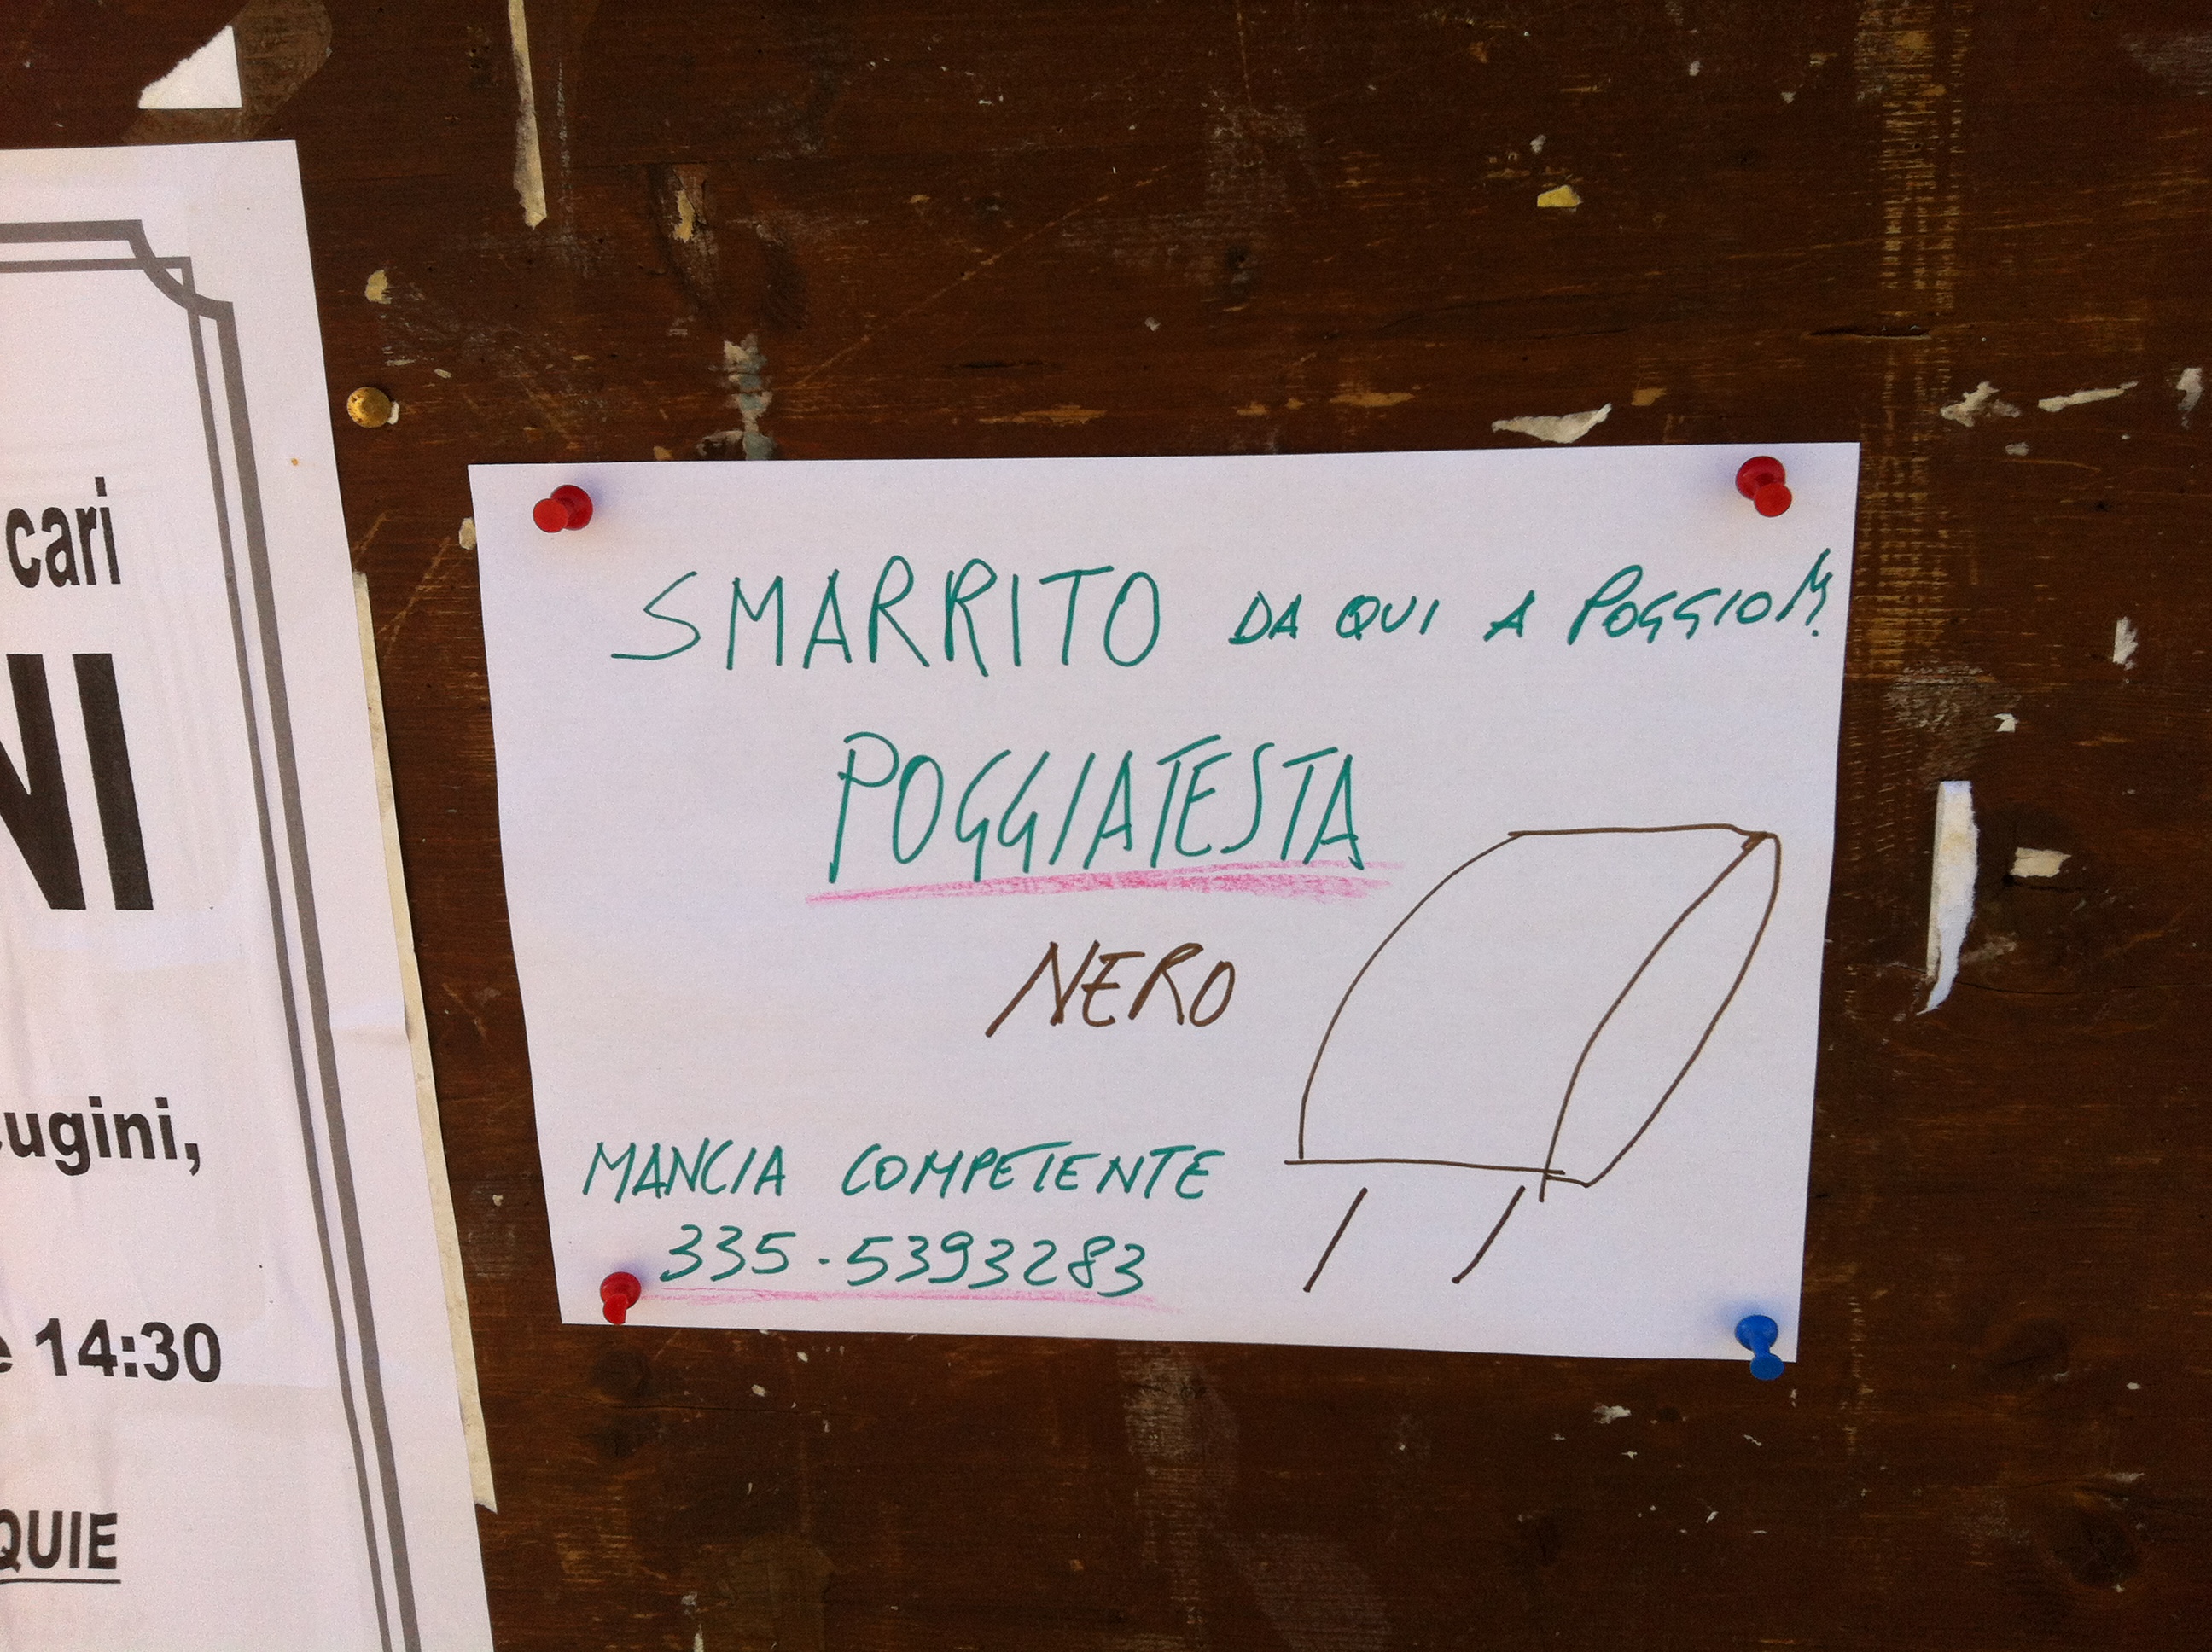 cari
NI
ugini,
e 14:30
QUIE
SMARRITO DA QUI A POGGIO M.
POGGIATESTA
NERO
MANCIA COMPETENTE
335.5393283